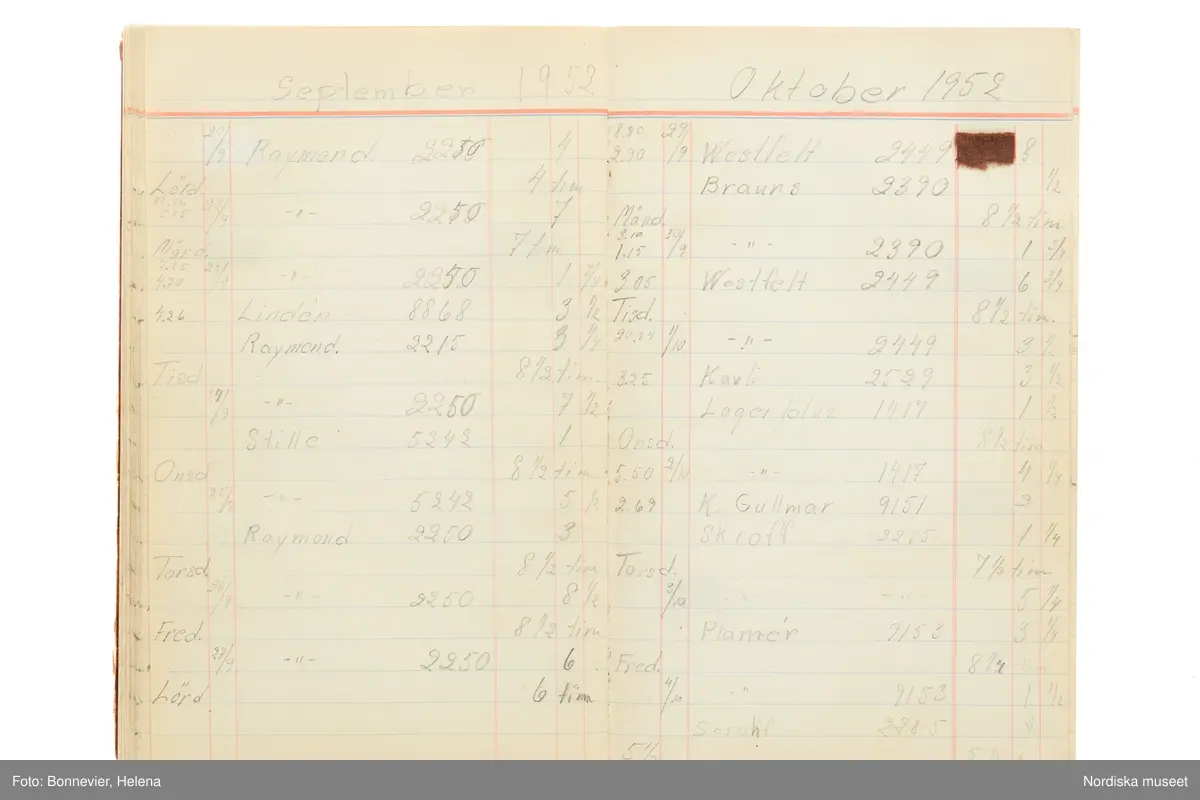 September 1952
/9 Raymond 2250 4
Lörd. 4 tim
/9 -"- 2250 7
Månd. 7 tim
/9 -"- 2250 1
4.26 Lindén 8868 3 1/2
Raymond. 2215 3 1/4
Tisd 8 1/2 tim.
/9 -"- 2250 7 1/2
Stille 5242 1
Onsd 8 1/2 tim
-"- 5242 5 1/2
Raymond 2250 3
Torsd. 8 1/2 tim
/9 -"- 2250 8 1/2
Fred. 8 1/2 tim
/9 -"- 2250 6
Lörd 6 tim
Oktober 1952
2.90 29/9 Westfelt 2449 8
Brauns 2390 1/2
Månd. 8 1/2 tim
1.15 30/9 -"- 2390 1 3/4
3.05 Westfelt 2449 6 3/4
Tisd. 8 1/2 tim.
1/10 -"- 2449 3 1/2
3.25 Kavli 2529 3 1/2
Lagerblus 1417 1 1/2
Onsd. 8 1/2 tim
5.50 2/10 -"- 1417 4 1/4
2.69 K. Gullmar 9151 2
Skroll 2285 1 1/4
Torsd. 7 1/2 tim
3/10 -"- 5 1/4
Plamér 9153 3 1/4
Fred. 8 1/2 tim
4/10 -"- 9153 1 1/2
4
5 1/2
Foto: Bonnevier, Helena
Nordiska museet